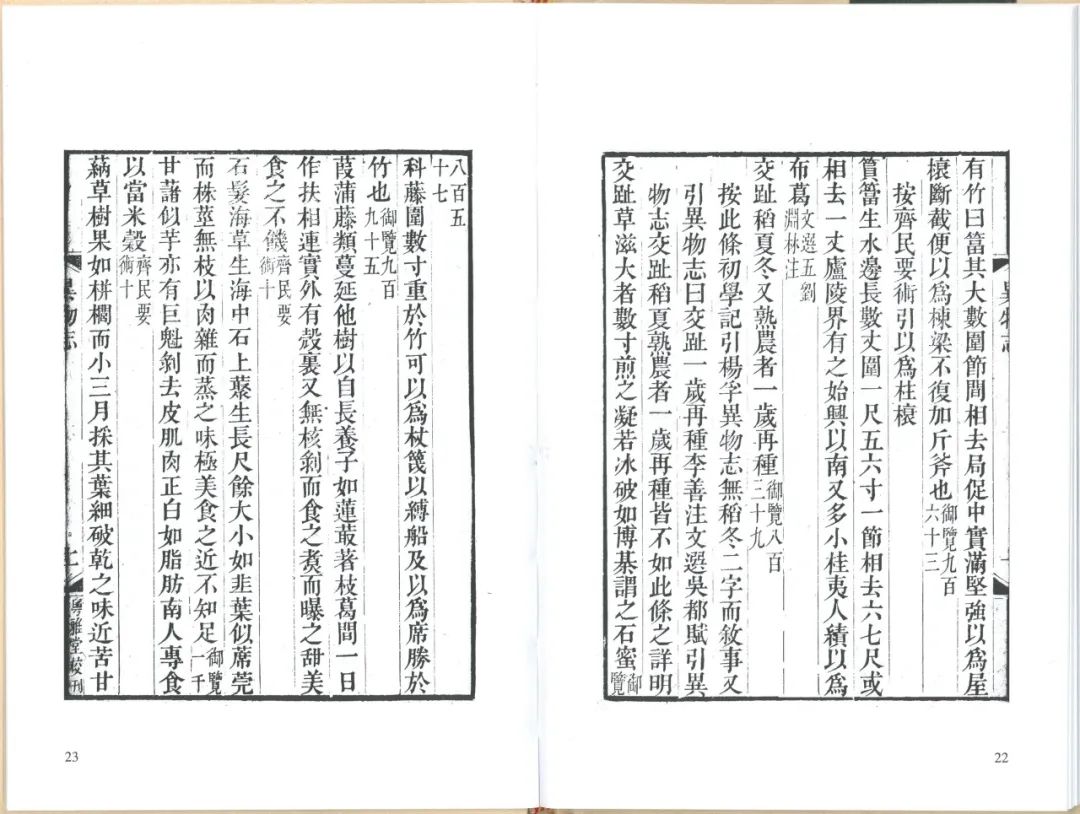 有竹曰䈏其大數圍節間相去局促中實滿堅強以爲屋
榱斷截便以爲棟梁不復加斤斧也御覽九百六十三
按齊民要術引以爲柱榱
篔簹生水邊長數丈圍一尺五六寸一節相去六七尺或
相去一丈廬陵界有之始興以南又多小桂夷人績以爲
布葛文選五劉淵林注
交趾稻夏冬又熟農者一歲再種御覽八百三十九
按此條初學記引楊孚異物志無稻冬二字而敘事又
引異物志曰交趾一歲再種李善注文選吳都賦引異
物志交趾稻夏熟農者一歲再種皆不如此條之詳明
交趾草滋大者數寸煎之凝若冰破如博棊謂之石蜜御覽
異物志
22
八百五十七
科藤圍數寸重於竹可以爲杖篾以縛船及以爲席勝於
竹也御覽九百九十五
葭蒲藤類蔓延他樹以自長養子如蓮菆著枝葛間一日
作扶相連實外有殼裏又無核剝而食之煑而曝之甜美
食之不饑齊民要術十
石髮海草生海中石上藂生長尺餘大小如韭葉似蓆莞
而株莖無枝以肉雜而蒸之味極美食之近不知足御覽一千
甘藷似芋亦有巨魁剝去皮肌肉正白如脂肪南人專食
以當米穀齊民要術十
藕草樹果如栟櫚而小三月採其葉細破乾之味近苦甘
異物志
粤雅堂校刊
23